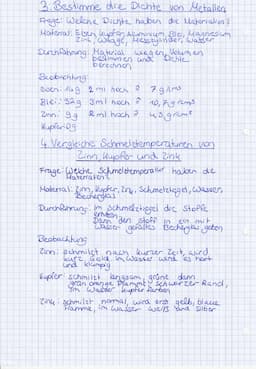 3. Bestimme die Dichte von Metallen
Frage: Welche Dichte haben die Materialien?
Material: Eisen, Kupfer, Aluminium, Blei, Magnesium
Zink, Waage, Messzylinder, Wasser
Durchführung: Material wiegen, Volumen
bestimmen und Dichte
berechnen
Beobachtung:
14g 2ml hoch 7 g/cm³
Blei: 32g 3ml hoch
Zinn: 9g 2ml hoch 4,5 g/cm³
Kupfer
4. Vergleiche Schmelztemperaturen von
Zinn, Kupfer und Zink
Frage: Welche Schmelztemperatur haben die
Materialien?
Material: Zinn, Kupfer, Zink, Schmelztiegel, Wasser,
Becherglas
Durchführung: Im Schmelztiegel die Stoffe
Dann den Stoff in ein mit
Wasser Becherglas geben
Beobachtung
Zinn: schmilzt nach kurzer Zeit, wird
kurz Gold, im Wasser wird es hart
und klumpig
Kupfer: schmilzt langsam, grüne dann
orange Flamme, schwarzer Rand,
im Wasser kupferfarben
Zink: schmilzt normal, wird erst gelb, blaue
Flamme, im Wasser weiß und silber